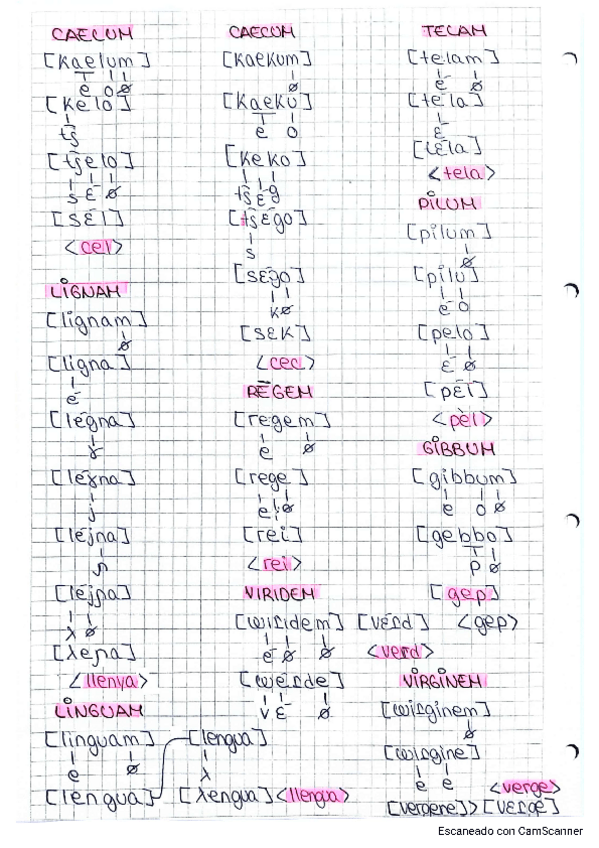 CAECUM
[kaelum]
e o ø
[kelo]
tʃ
[tʃelo]
s ɛ ø
[sɛl]
<cel>
LĬGNAM
[lignam]
ø
[ligna]
e
[legna]
ɣ
[leɣna]
j
[lejna]
ɲ
[lejɲa]
ʎ ø
[ʎeɲa]
<llenya>
LĬNGUAM
[linguam]
e ø
[lengua]
[lengua]
ʎ
[ʎengua] <llengua>
CAECUM
[kaekum]
ø
[kaeku]
e o
[keko]
tʃ ɛ g
[tʃɛgo]
s
[sɛgo]
k ø
[sɛk]
<cec>
RĒGEM
[regem]
e ø
[rege]
e i ø
[rei]
<rei>
VIRIDEM
[wiɾidem]
e ø ø
[weɾde]
v ɛ ø
[vɛɾd]
<verd>
TELAM
[telam]
ɛ ø
[tela]
ɛ
[tɛla]
<tela>
PĬLUM
[pilum]
ø
[pilu]
e o
[pelo]
ɛ ø
[pɛl]
<pèl>
GĬBBUM
[gibbum]
e o ø
[gebbo]
p ø
[gep]
<gep>
VĬRGINEM
[wiɾginem]
ø
[wiɾgine]
e e
<verge>
[vergene]>[vɛɾgе]
Escaneado con CamScanner